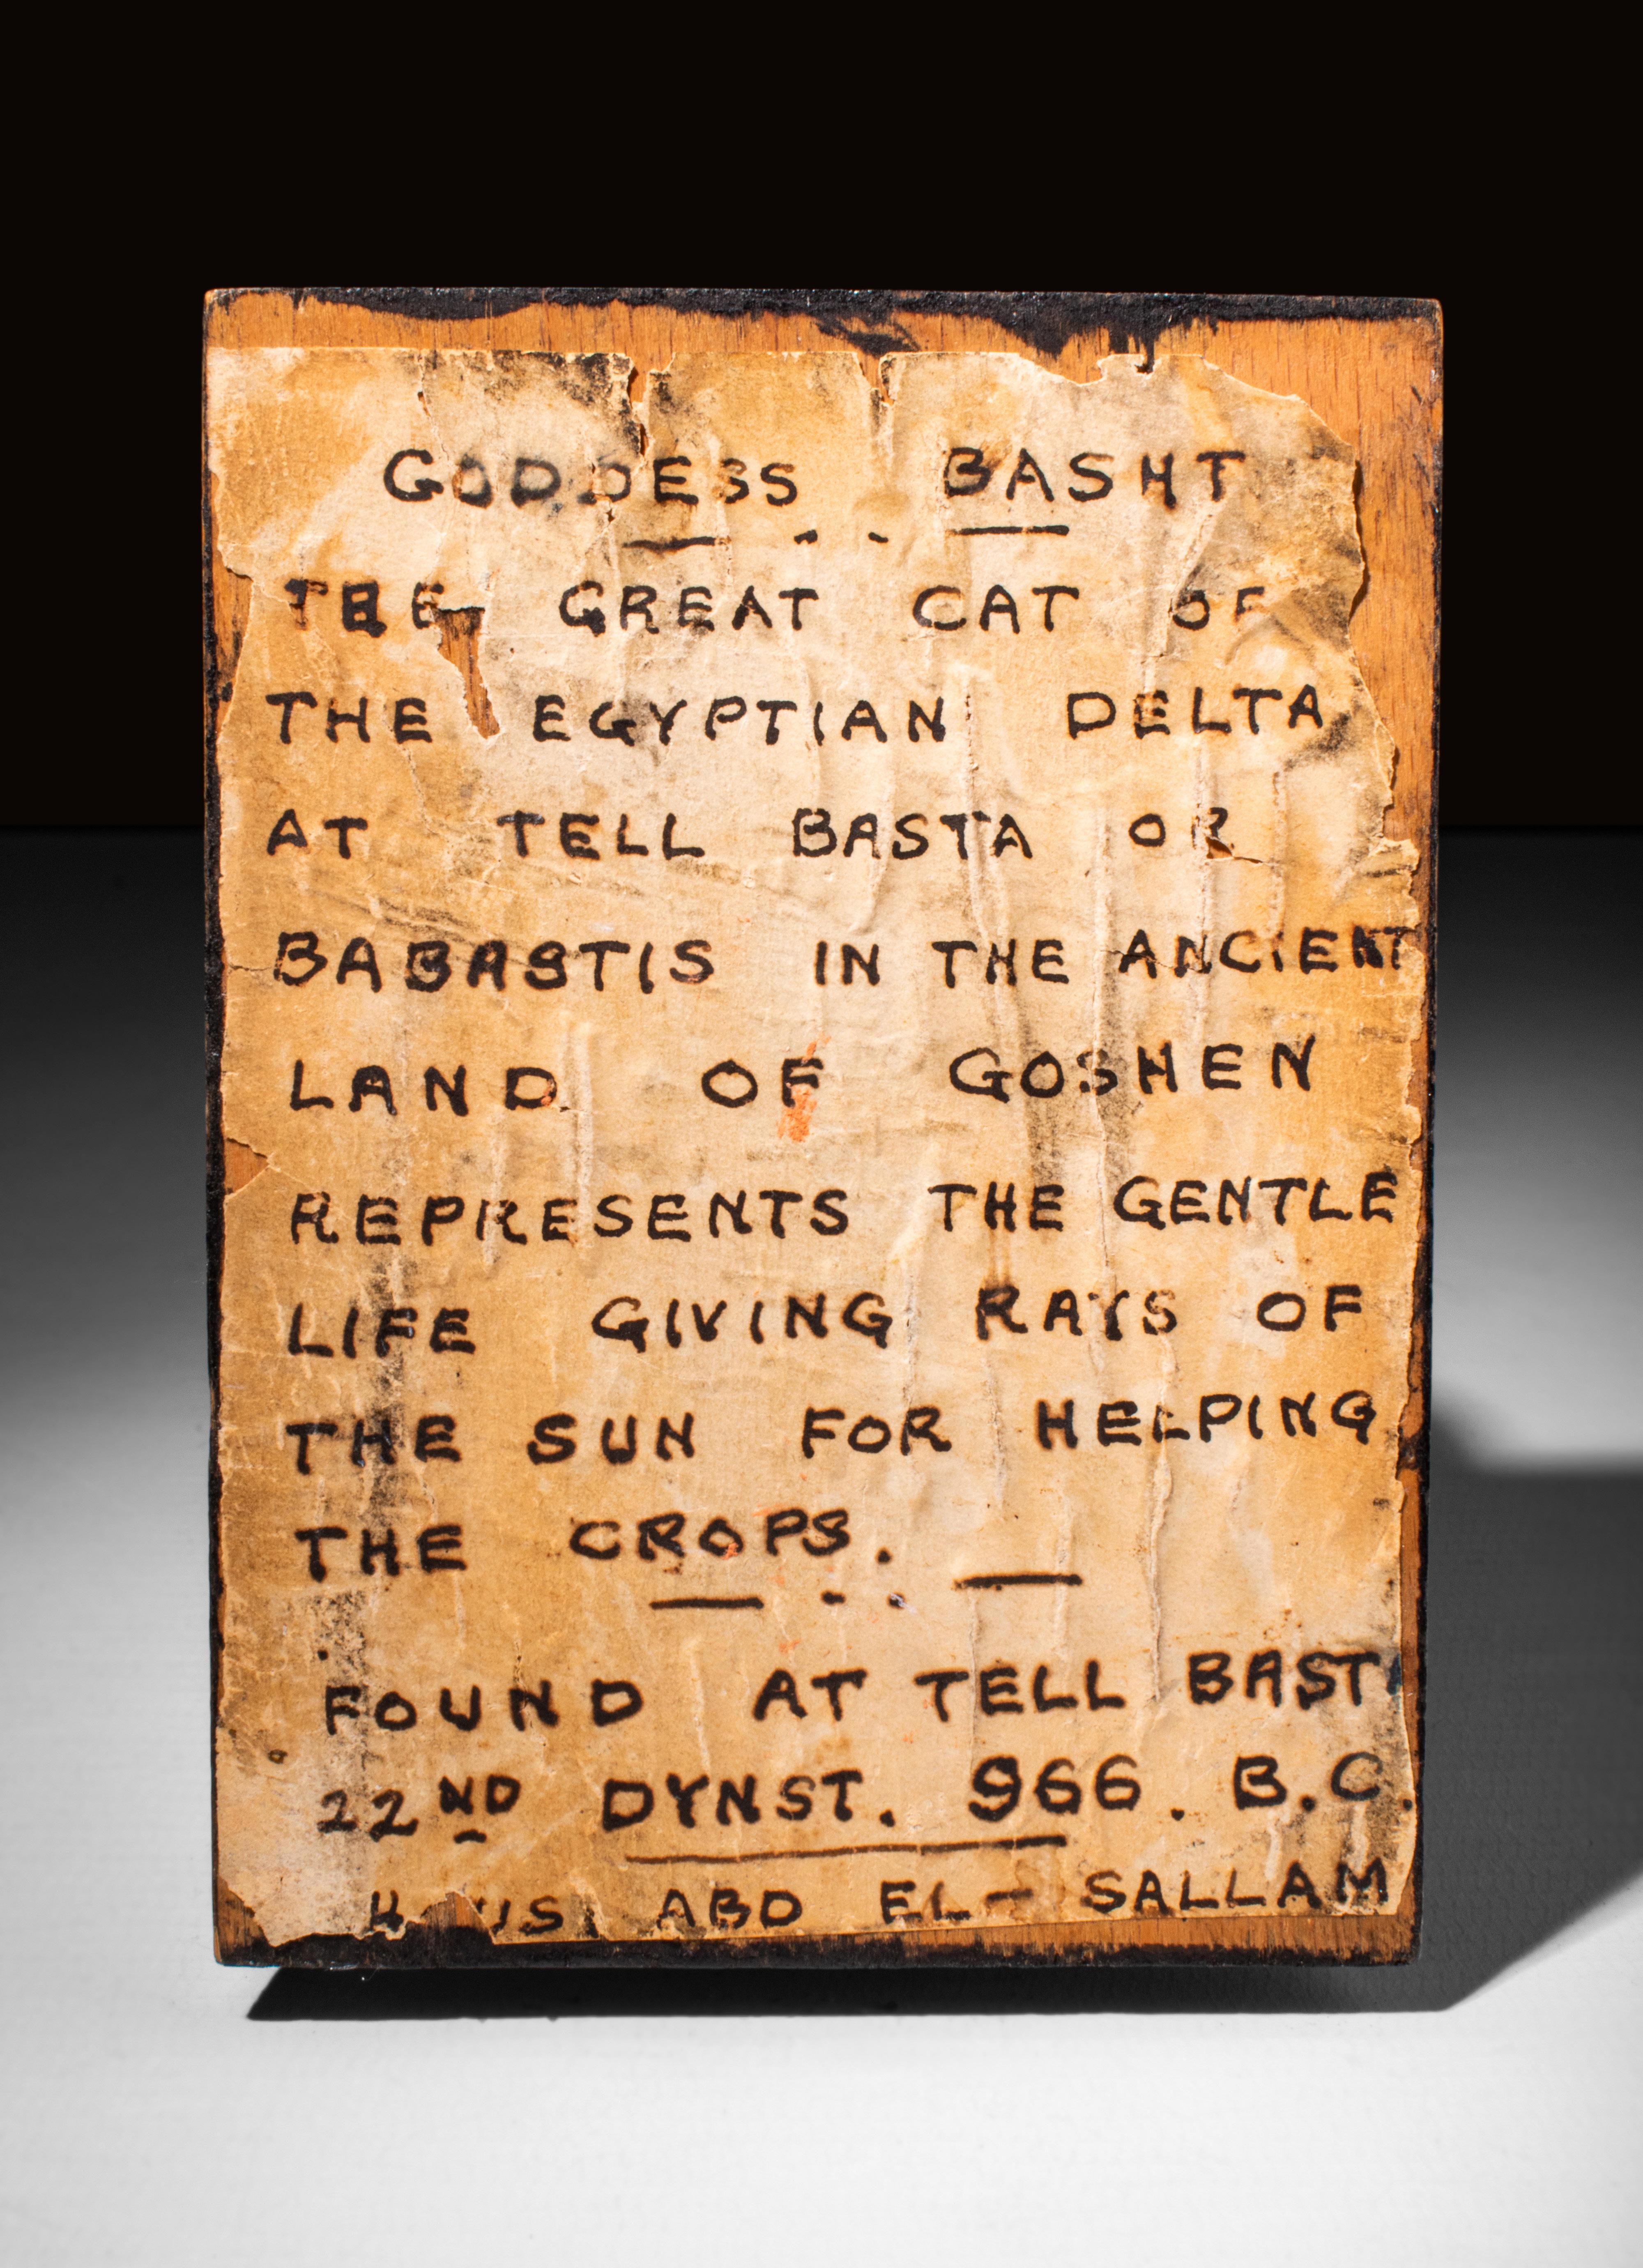 GODDESS BASHT
THE GREAT CAT OF
THE EGYPTIAN DELTA
AT TELL BASTA OR
BABASTIS IN THE ANCIENT
LAND OF GOSHEN
REPRESENTS THE GENTLE
LIFE GIVING RAYS OF
THE SUN FOR HELPING
THE CROPS.
FOUND AT TELL BAST
22ND DYNST. 966. B.C.
ABD EL- SALLAM